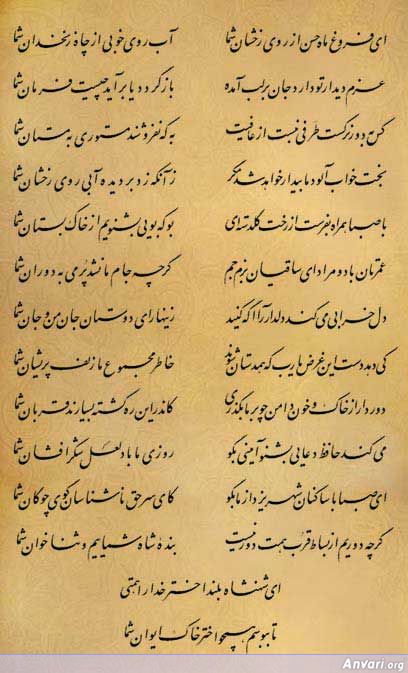 ای فروغ ماه حسن از روی رخشان شما آب روی خوبی از چاه زنخدان شما
عزم دیدار تو دارد جان بر لب آمده بازگردد یا برآید چیست فرمان شما
کس به دور نرگست طرفی نبست از عافیت به که نفروشند مستوری به مستان شما
بخت خواب آلود ما بیدار خواهد شد مگر زانکه زد بر دیده آبی روی رخشان شما
با صبا همراه بفرست از رخت گلدسته‌ای بو که بویی بشنویم از خاک بستان شما
عمرتان باد و مراد ای ساقیان بزم جم گرچه جام ما نشد پر می به دوران شما
دل خرابی می‌کند دلدار را آگه کنید زینهار ای دوستان جان من و جان شما
کی دهد دست این غرض یا رب که همدستان شوند خاطر مجموع ما زلف پریشان شما
دور دار از خاک و خون دامن چو بر ما بگذری کاندر این ره کشته بسیارند قربان شما
می‌کند حافظ دعایی بشنو آمینی بگو روزی ما باد لعل شکرافشان شما
ای صبا با ساکنان شهر یزد از ما بگو کای سر حق ناشناسان گوی چوگان شما
گرچه دوریم از بساط قرب همت دور نیست بنده شاه شماییم و ثناخوان شما
ای شهنشاه بلند اختر خدا را همتی
تا ببوسم همچو اختر خاک ایوان شما
Anvari.org